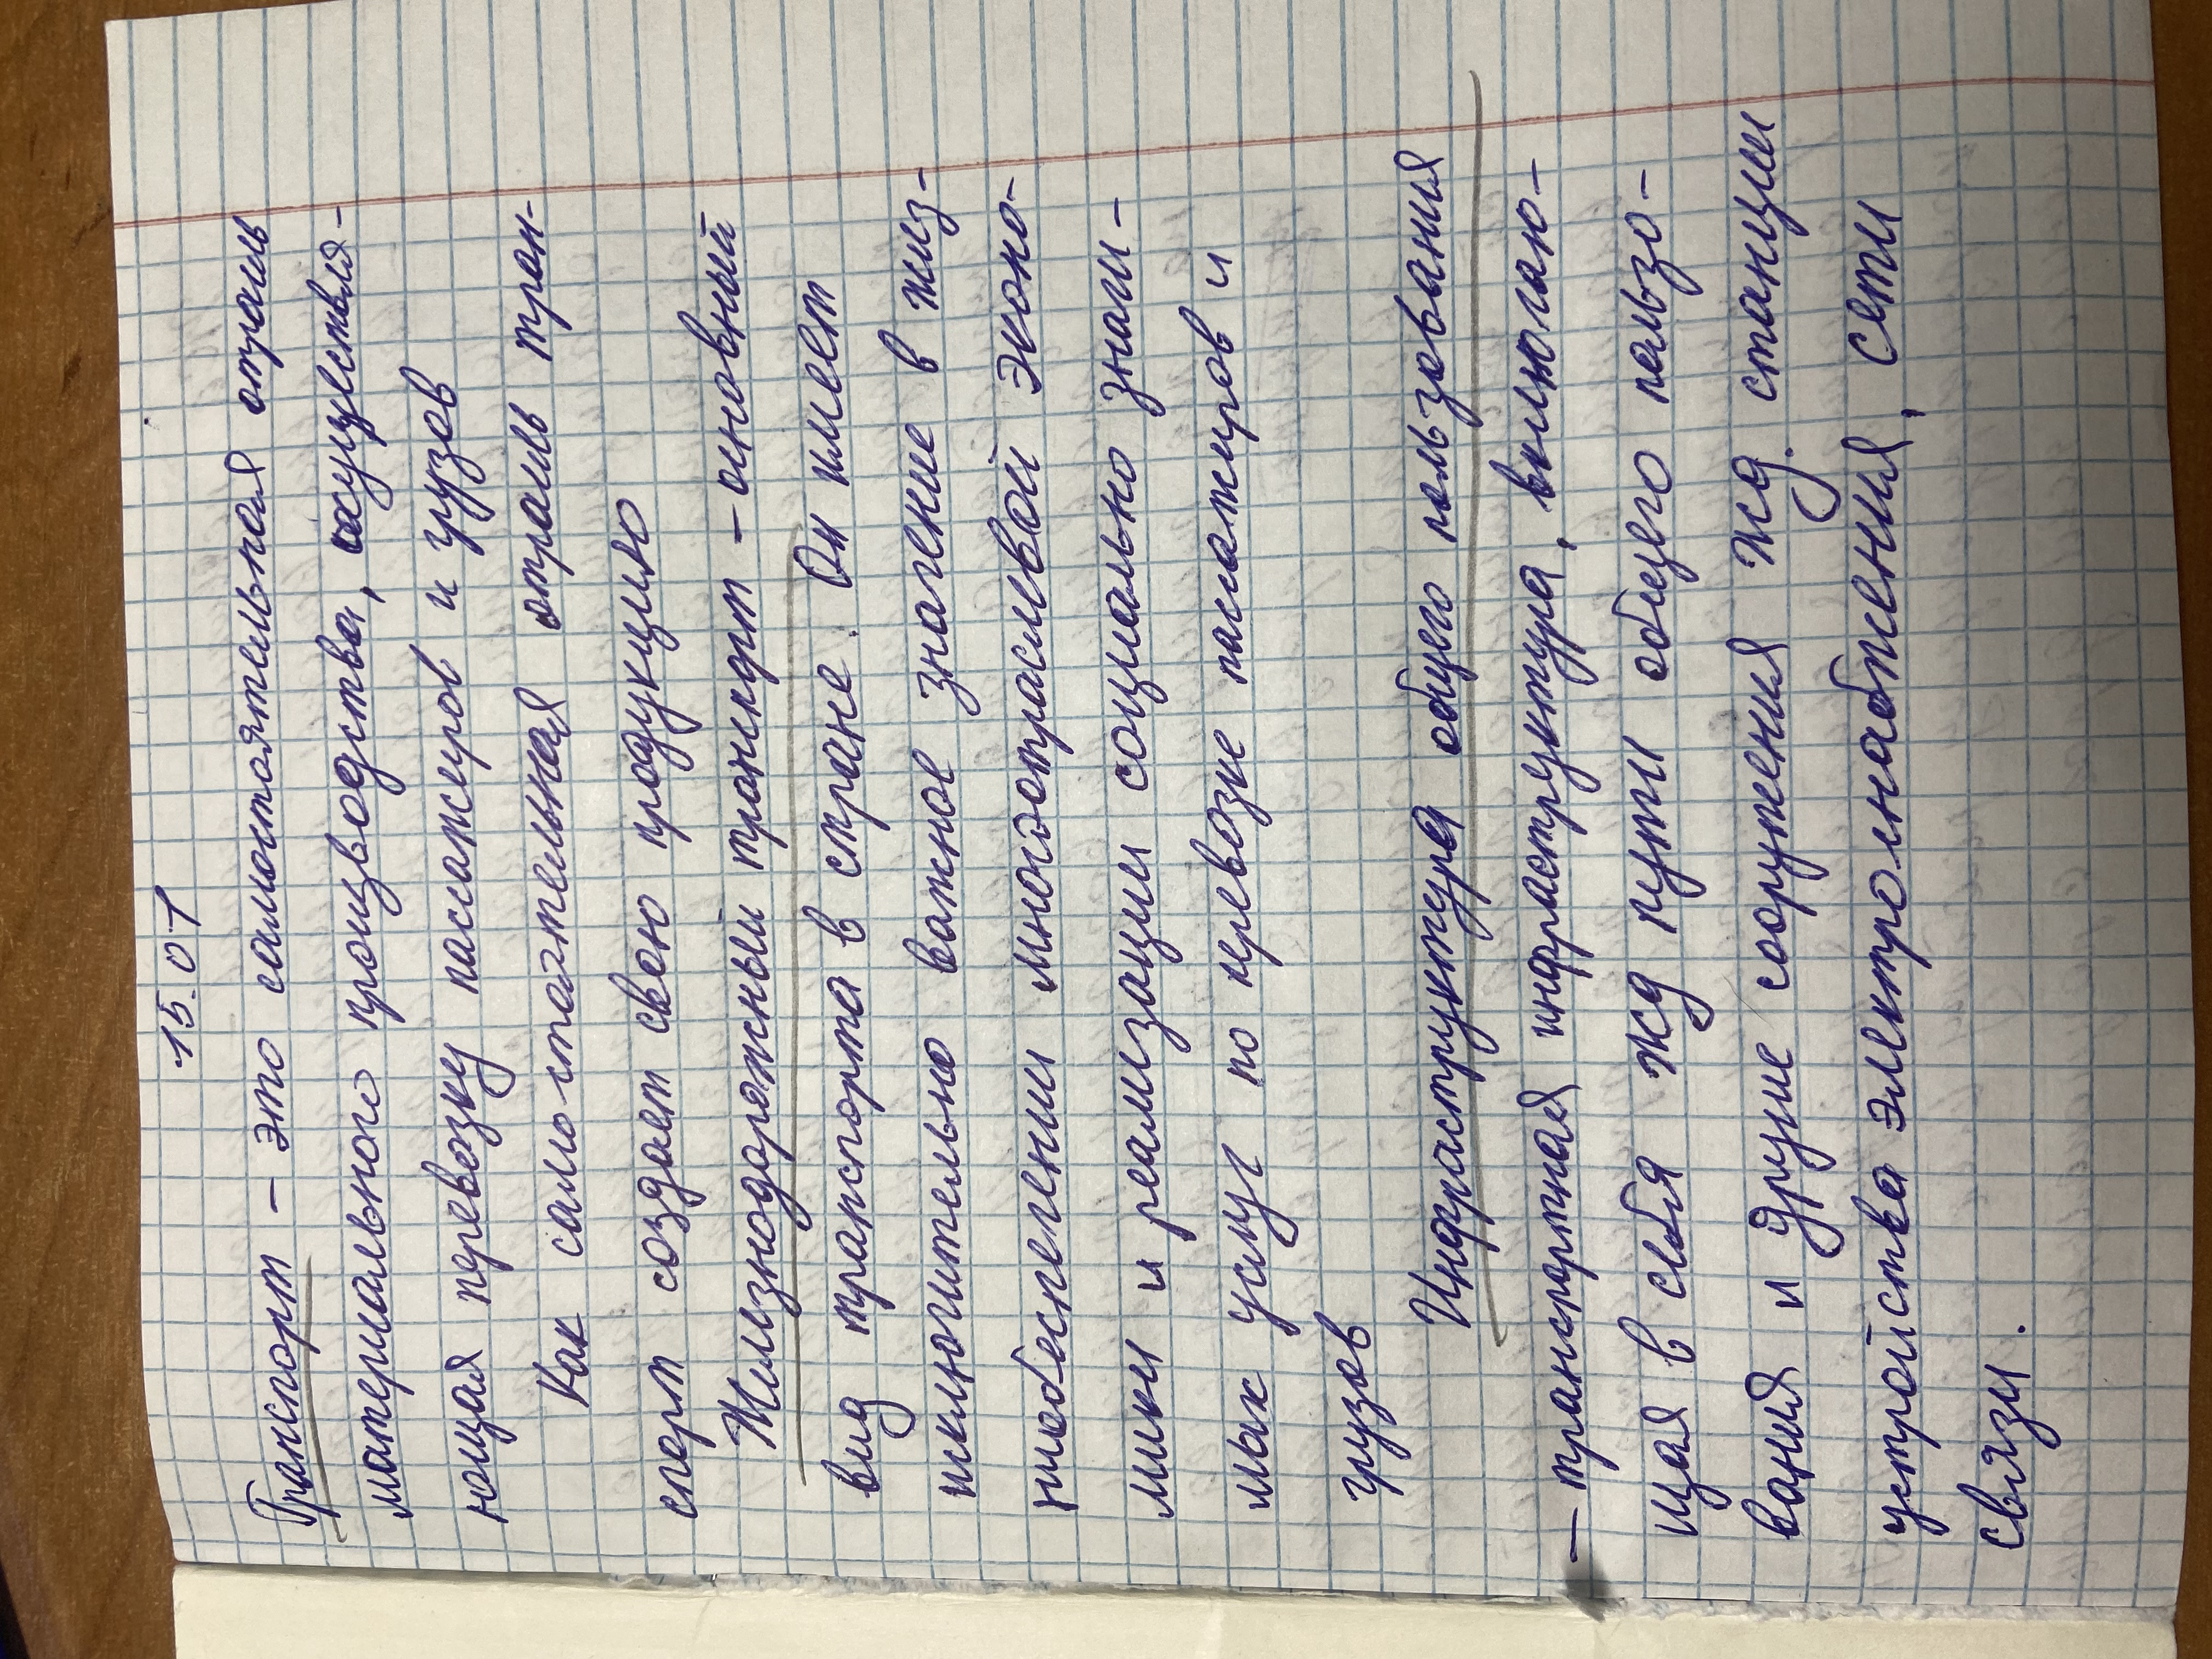 15.01
Транспорт - это самостоятельная отрасль
материального производства, осуществля-
ющая перевозку пассажиров и грузов
Как самостоятельная отрасль тран-
спорт создает свою продукцию
Железнодорожный транспорт - основный
вид транспорта в стране. Он имеет
исключительно важное значение в жиз-
необеспечении многоотраслевой эконо-
мики и реализации социально знач-
мых услуг по перевозке пассажиров и
грузов
Инфраструктура общего пользования
- транспортная инфраструктура, включаю-
щая в себя жд пути общего пользо-
вания и другие сооружения жд. станции
устройства электроснабжения, сети
связи.